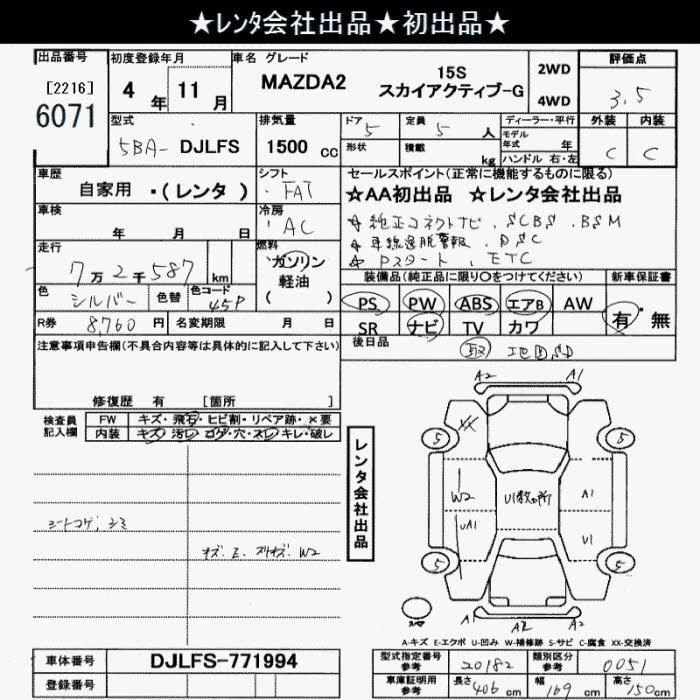 ★レンタ会社出品★初出品★
出品番号 初度登録年月 車名 グレード 評価点
[2216] 6071
4年 11月
MAZDA2 15S スカイアクティブ-G
2WD
4WD
3.5
型式 排気量 ドア 定員 ディーラー・平行 外装 内装
5BA- DJLFS 1500 cc 5 5 人 モデル年式 年
C C
形状 積載 kg ハンドル 右・左
車歴 シフト セールスポイント(正常に機能するものに限る)
自家用 ・(レンタ) FAT
☆AA初出品 ☆レンタ会社出品
車検 年 月 日 冷房 AC
☆ 純正コネクトナビ、SCBS、BSM
☆ 車線逸脱警報、DSC
☆ Pスタート、ETC
走行 7万2千587 km
燃料 ガソリン 軽油 ( )
装備品(純正品に限り〇をつけてください) 新車保証書
色 シルバー 色替 色コード 45P
PS PW ABS エアB AW 有・無
SR ナビ TV カワ
R券 8,760 円 名変期限 月 日
後日品
取 地図SD
注意事項申告欄(不具合内容等は具体的に記入して下さい)
修復歴 有 [箇所 ]
検査員記入欄
FW キズ・飛石・ヒビ割・リペア跡・×要
内装 キズ・汚レ・コゲ・穴・スレ・キレ・破レ
レンタ会社出品
シートコゲ、シミ
キズ、E、スリキズ、W2
A2 A1
5 5
W2 U1数カ所 A1
UA1 U1
5 5
スペア
A1 A2 A1
A-キズ E-エクボ U-凹み W-補修跡 S-サビ C-腐食 XX-交換済
車体番号 DJLFS-771994
登録番号
型式指定番号 参考 20182 類別区分 参考 0051
車庫証明用 参考 長さ 406 cm 幅 169 cm 高さ 150 cm